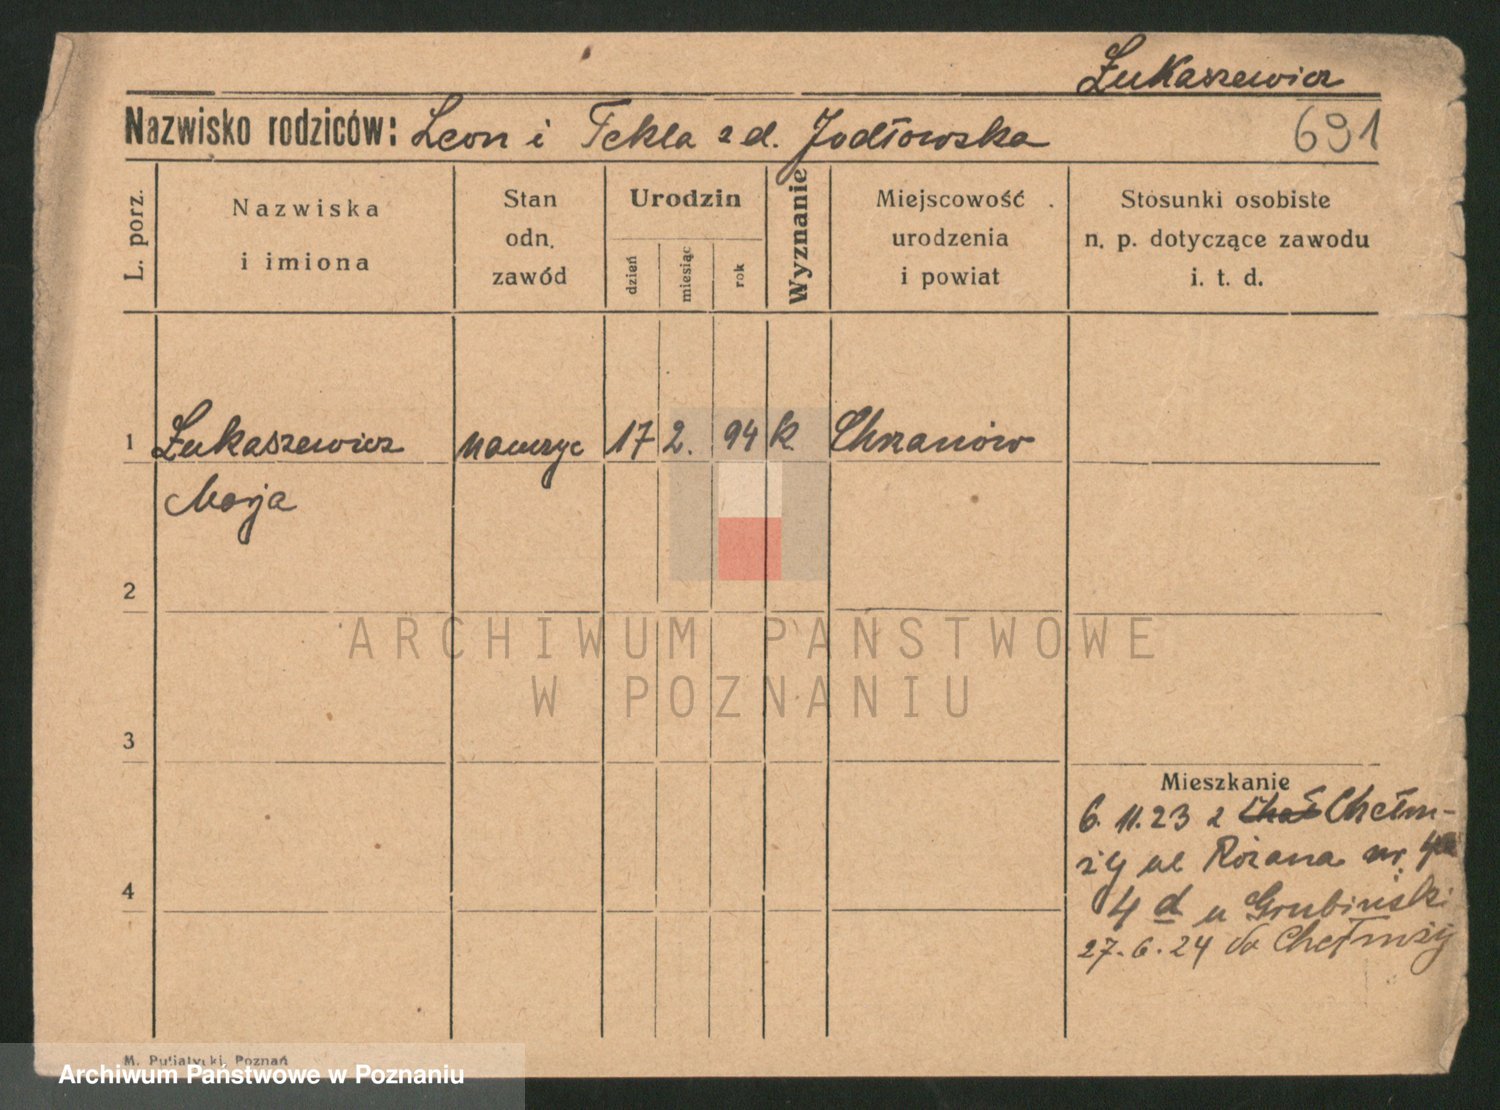 Łukaszewicz
Nazwisko rodziców: Leon i Tekla z d. Jodłowska 691
L. porz.
Nazwiska
i imiona
Stan
odn.
zawód
Urodzin
dzień
miesiąc
rok
Wyznanie
Miejscowość
urodzenia
i powiat
Stosunki osobiste
n. p. dotyczące zawodu
i. t. d.
1 Łukaszewicz nauczyc 17 2. 94 k. Chrzanów
Marja
2
3
4
Mieszkanie
6. 11. 23 z Chełm-
ży ul Różana nr.
4 d u Grubiński
27. 6. 24 do Chełmży
ARCHIWUM PAŃSTWOWE
W POZNANIU
M. Putiatycki, Poznań
Archiwum Państwowe w Poznaniu